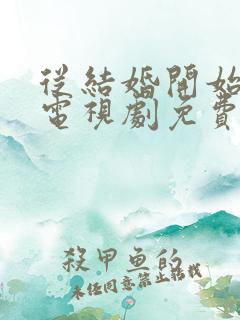 從結婚開始
電視劇免費
殺甲鱼的
未任同意禁止转载